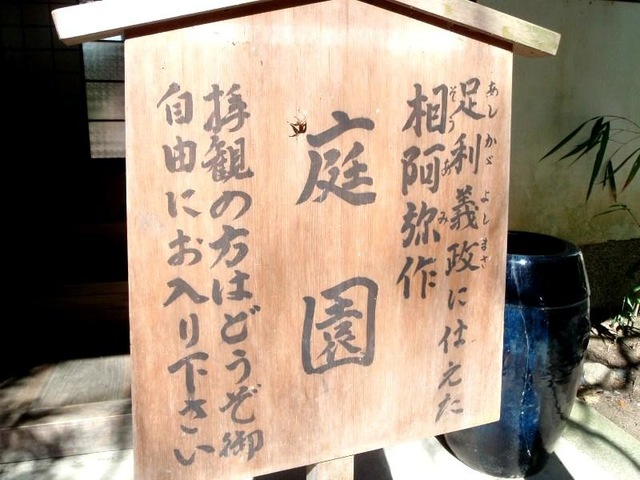 足利義政に仕えた
あしかゞよしまさ
相阿弥作
そうあみ
庭園
拝観の方はどうぞ御
自由にお入り下さい